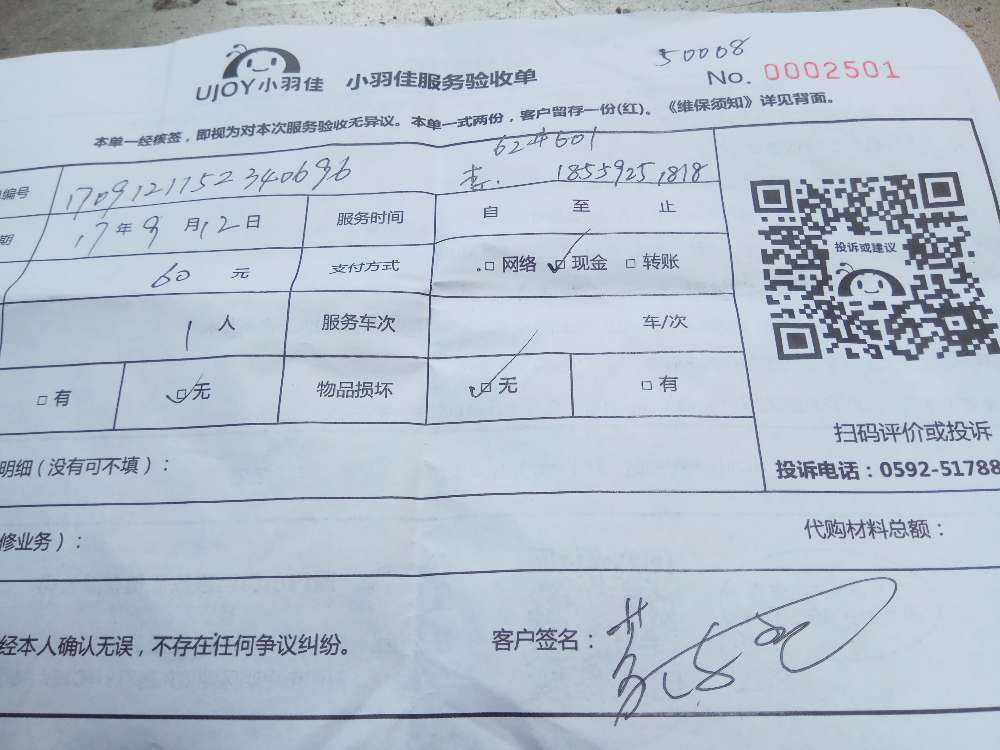 50008
UJOY小羽佳 小羽佳服务验收单 No. 0002501
本单一经核签，即视为对本次服务验收无异议。本单一式两份，客户留存一份(红)。《维保须知》详见背面。
62#601
编号 1709121152340696 18559251818
期 17年9月12日 服务时间 自 至 止
60 元 支付方式 网络 现金 转账
1 人 服务车次 车/次
有 无 物品损坏 无 有
投诉或建议
扫码评价或投诉
投诉电话：0592-51788
明细（没有可不填）：
修业务）： 代购材料总额：
经本人确认无误，不存在任何争议纠纷。 客户签名：